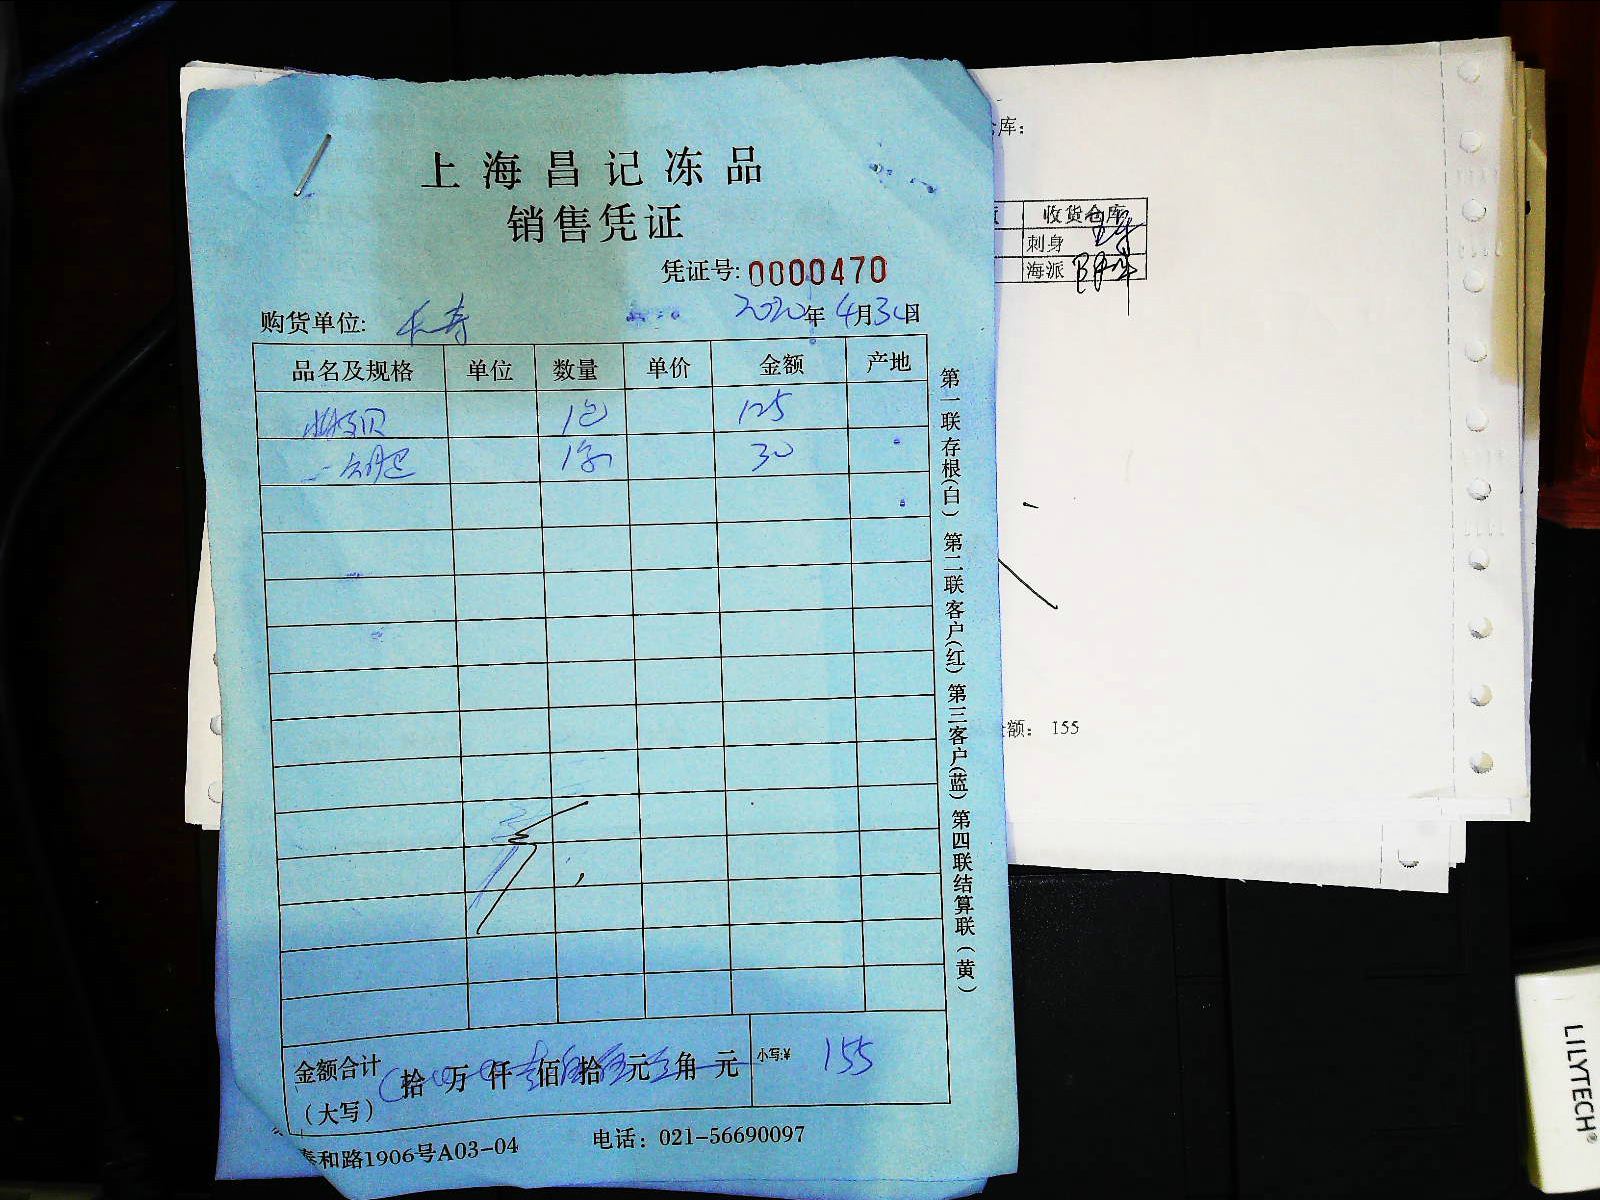 上海昌记冻品
销售凭证
凭证号: 0000470
购货单位: 长寿 2020年4月30日
品名及规格 单位 数量 单价 金额 产地
1包 125
30
金额合计 拾 万 仟 壹佰伍拾伍元 角 元 小写:¥ 155
(大写)
泰和路1906号A03-04 电话: 021-56690097
第一联存根(白) 第二联客户(红) 第三客户(蓝) 第四联结算联(黄)
库:
收货仓库
刺身
海派
额: 155
LILYTECH®